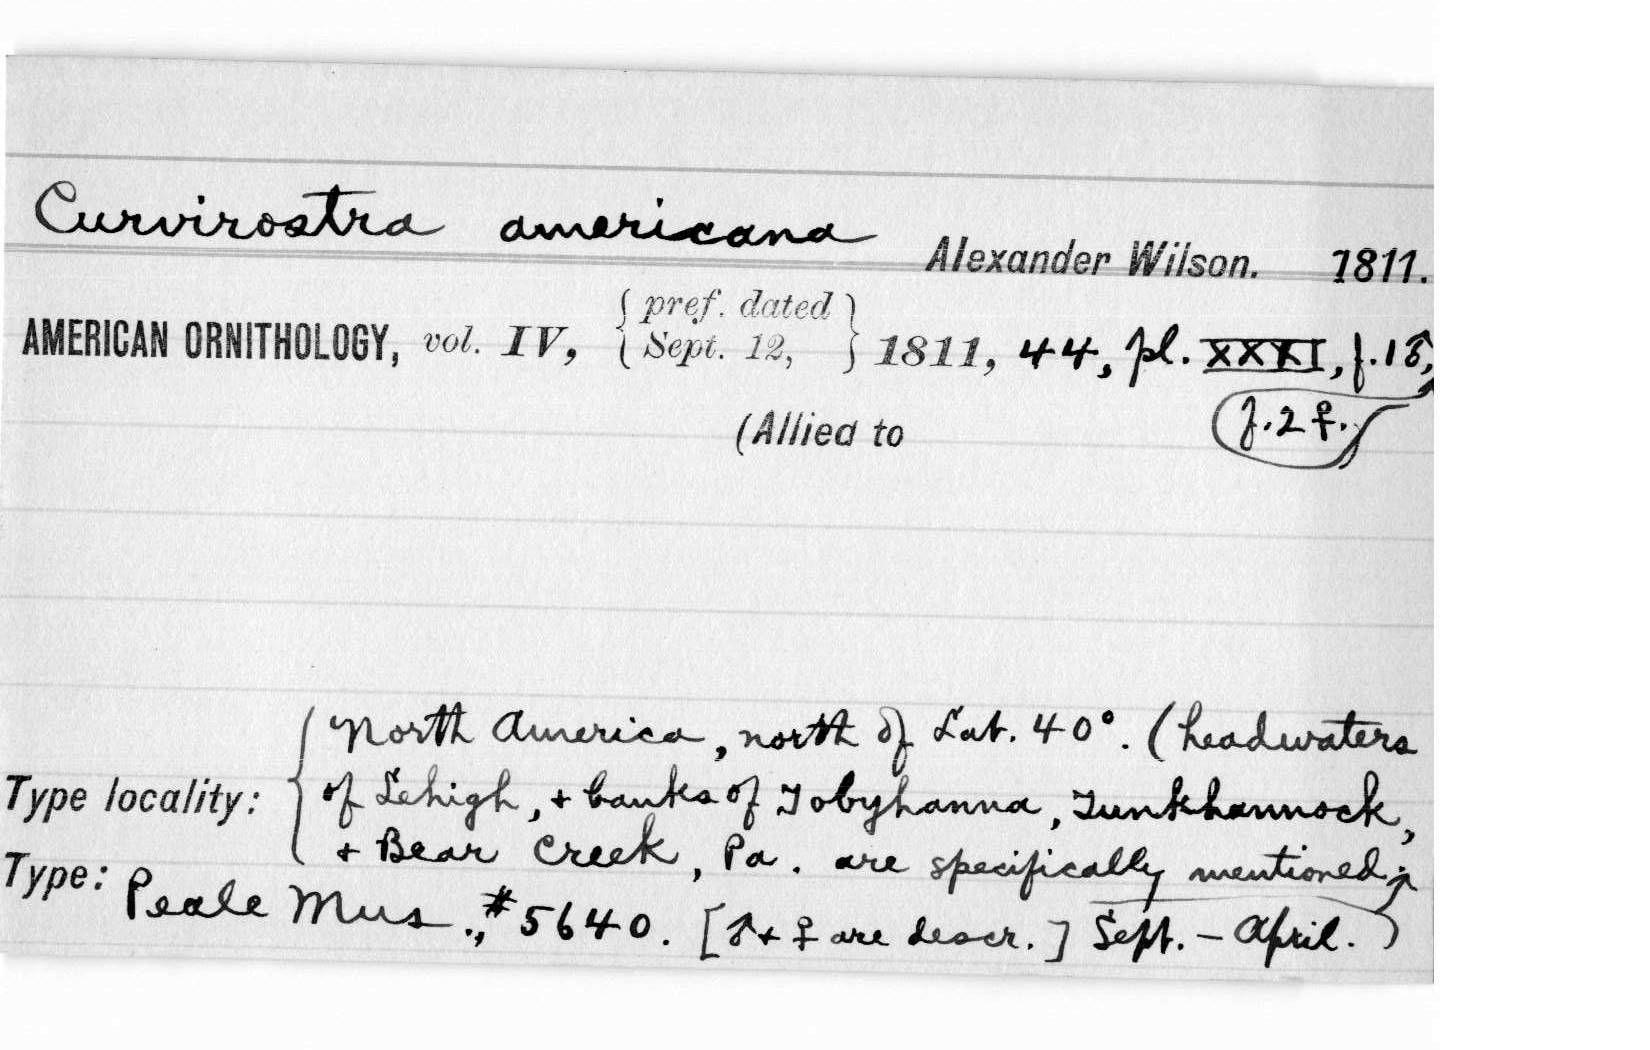 Curvirostra americana
Alexander Wilson. 1811.
AMERICAN ORNITHOLOGY, vol. IV, { pref. dated Sept. 12, } 1811, 44, pl. XXXI, f.1♂,
f.2♀.
(Allied to
North America, north of Lat. 40°. (headwaters
Type locality: of Lehigh, + banks of Tobyhanna, Tunkhannock,
+ Bear Creek, Pa. are specifically mentioned;
Type: Peale Mus., #5640. [♂+♀ are descr.] Sept. - April.)